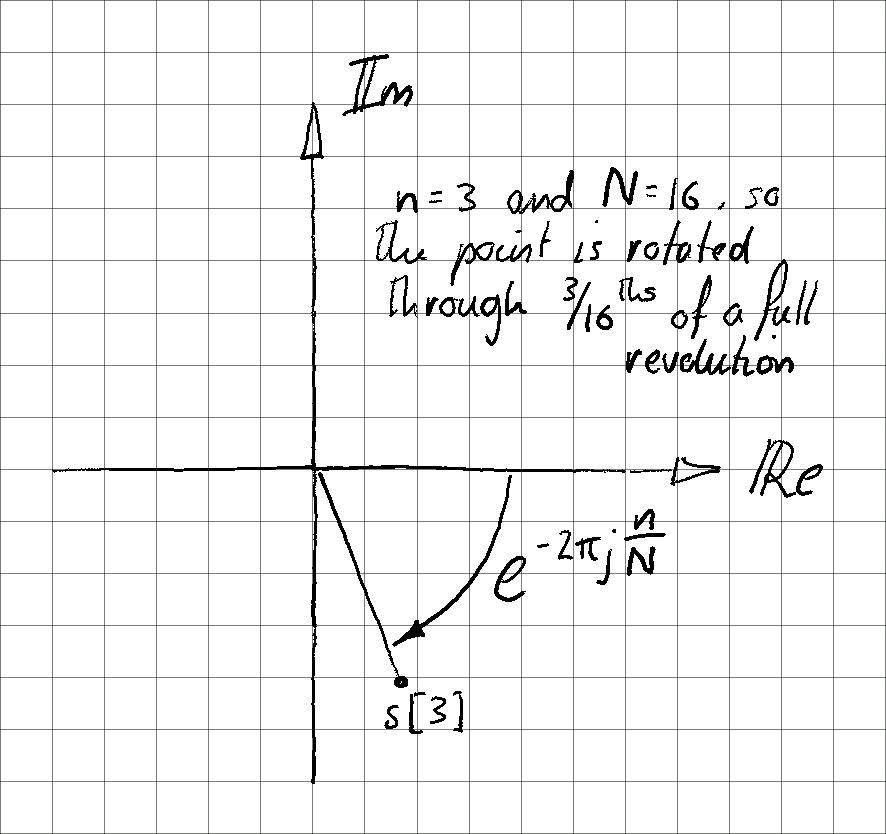 Im
n = 3 and N = 16, so
the point is rotated
through 3/16ths of a full
revolution
Re
e^{-2πj n/N}
s[3]